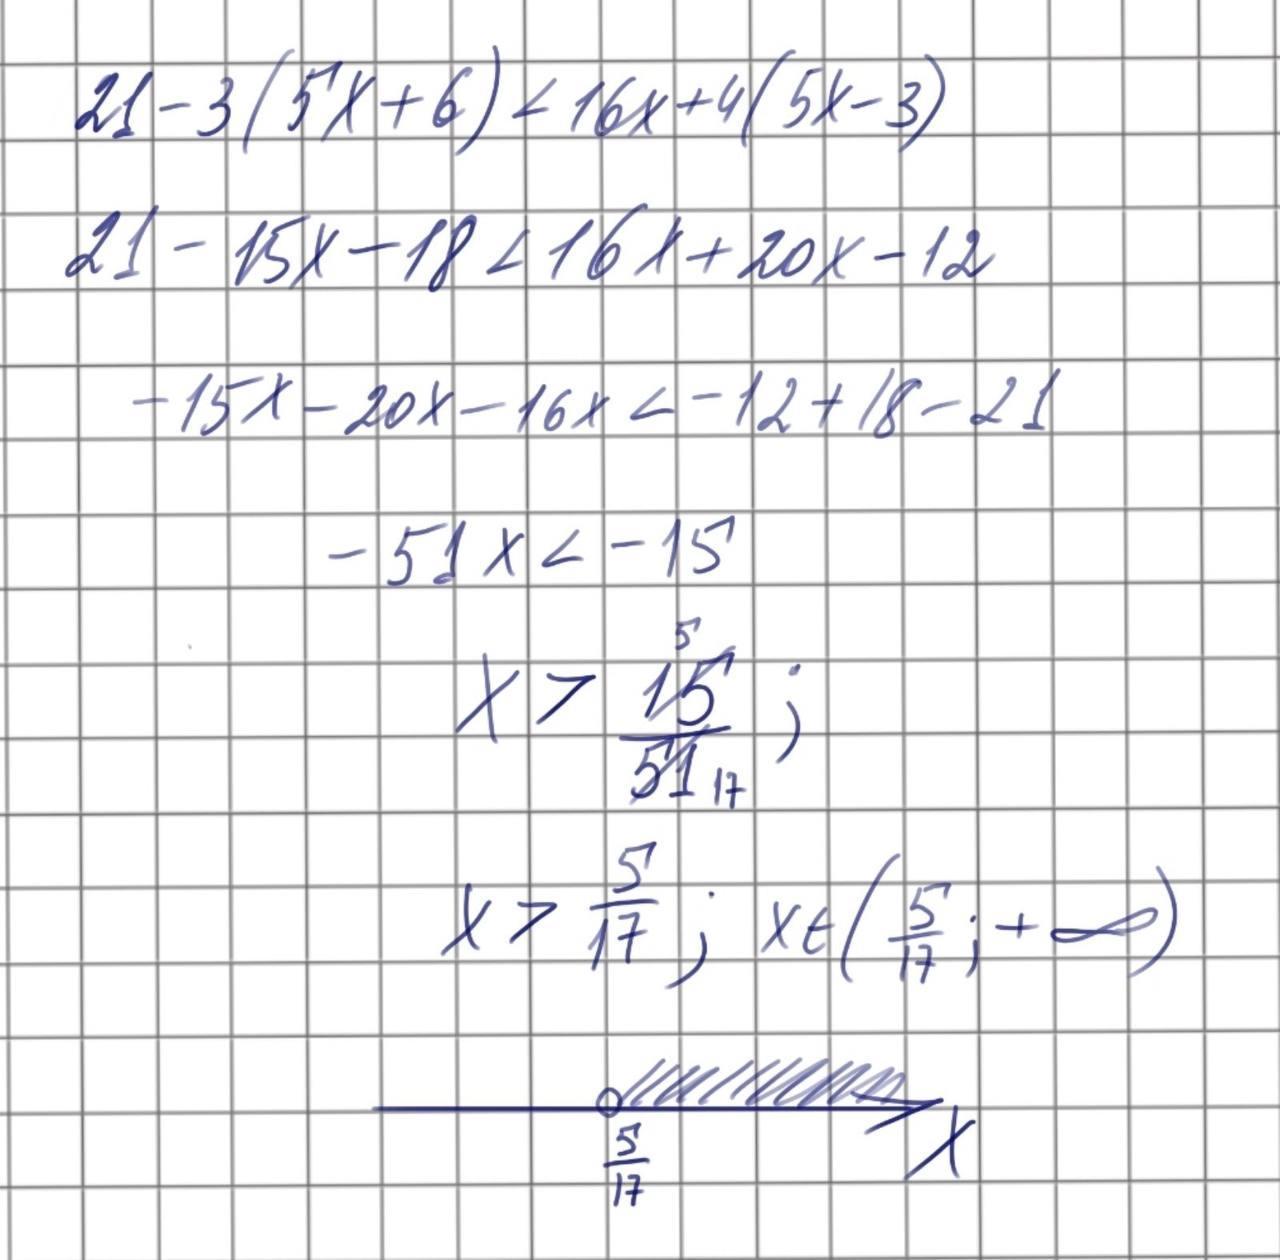 21-3(5x+6)<16x+4(5x-3)
21-15x-18<16x+20x-12
-15x-20x-16x<-12+18-21
-51x<-15
x > 15/51 ; 5 17
x > 5/17 ; x∈(5/17 ; +∞)
5/17 x